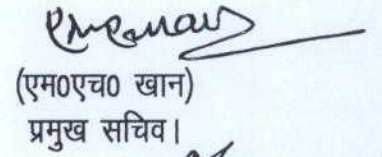 (एम0एच0 खान)
प्रमुख सचिव।